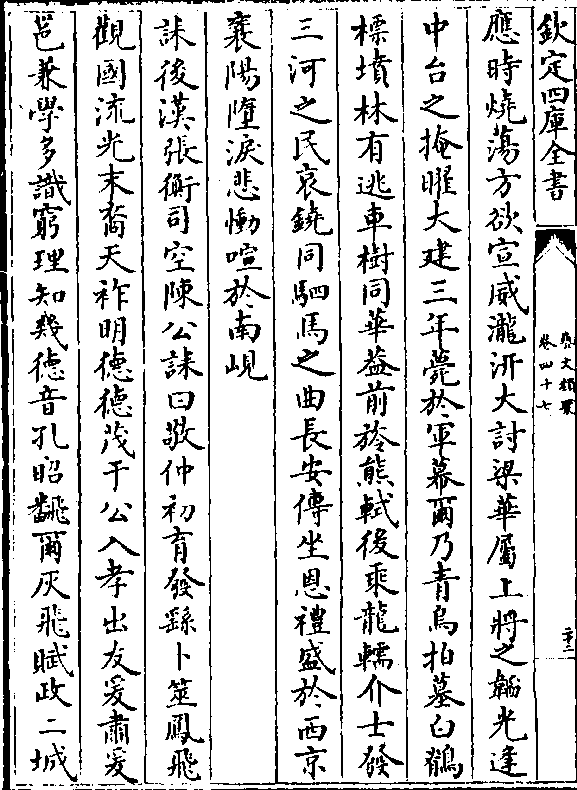 欽定四庫全書
藝文類聚
卷四十七
二十二
應時燒蕩方欲宣威瀧沂大討梁華屬上將之韜光逢
中台之掩曜大建三年薨於軍幕爾乃青烏拍墓白鶴
標墳林有逃車樹同華葢前旍熊軾後乘龍轜介士發
三河之民哀鐃同駟馬之曲長安傳坐恩禮盛於西京
襄陽墮淚悲慟喧於南峴
誄後漢張衡司空陳公誄曰敬仲初育發繇卜筮鳳飛
觀國流光末裔天祚明德德茂于公入孝出友爰肅爰
邕兼學多識窮理知幾德音孔昭翻爾灰飛賦政二城